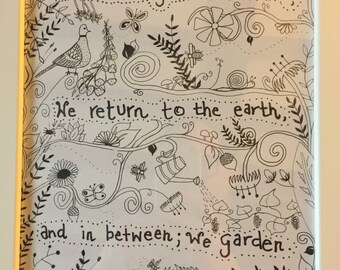 We return to the earth,
and in between, we garden.